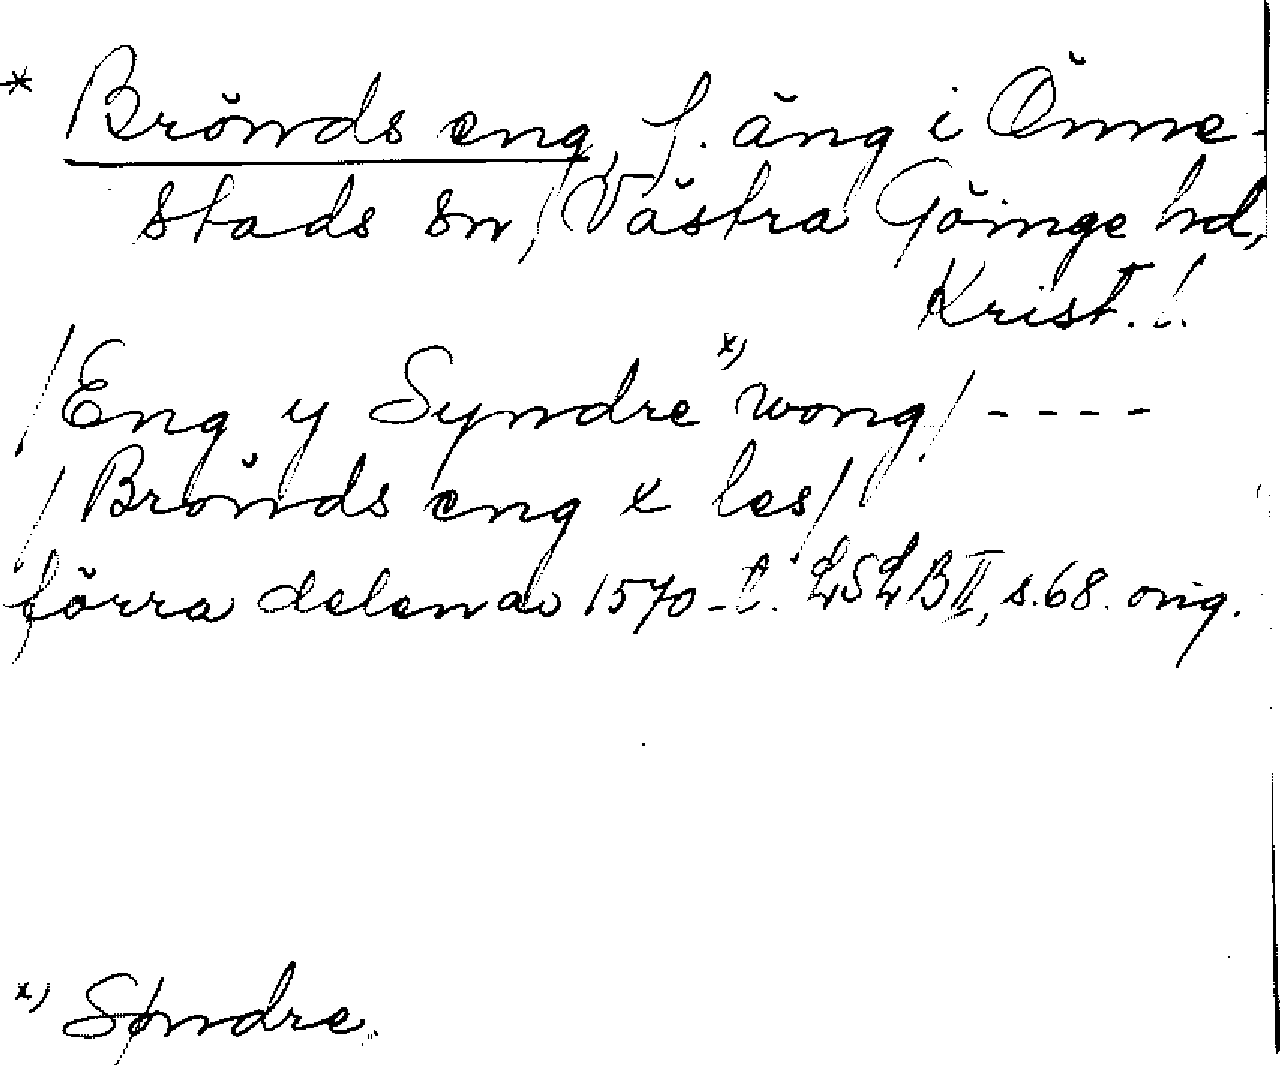 * Brönds eng, f. äng i Önne-
stads sn, Västra Göinge hd,
Krist. l.
/Eng y Syndre x) wong/ ----
/Brönds eng x les/
förra delen av 1570-t. LSLB II, s. 68. orig.
x) Søndre.